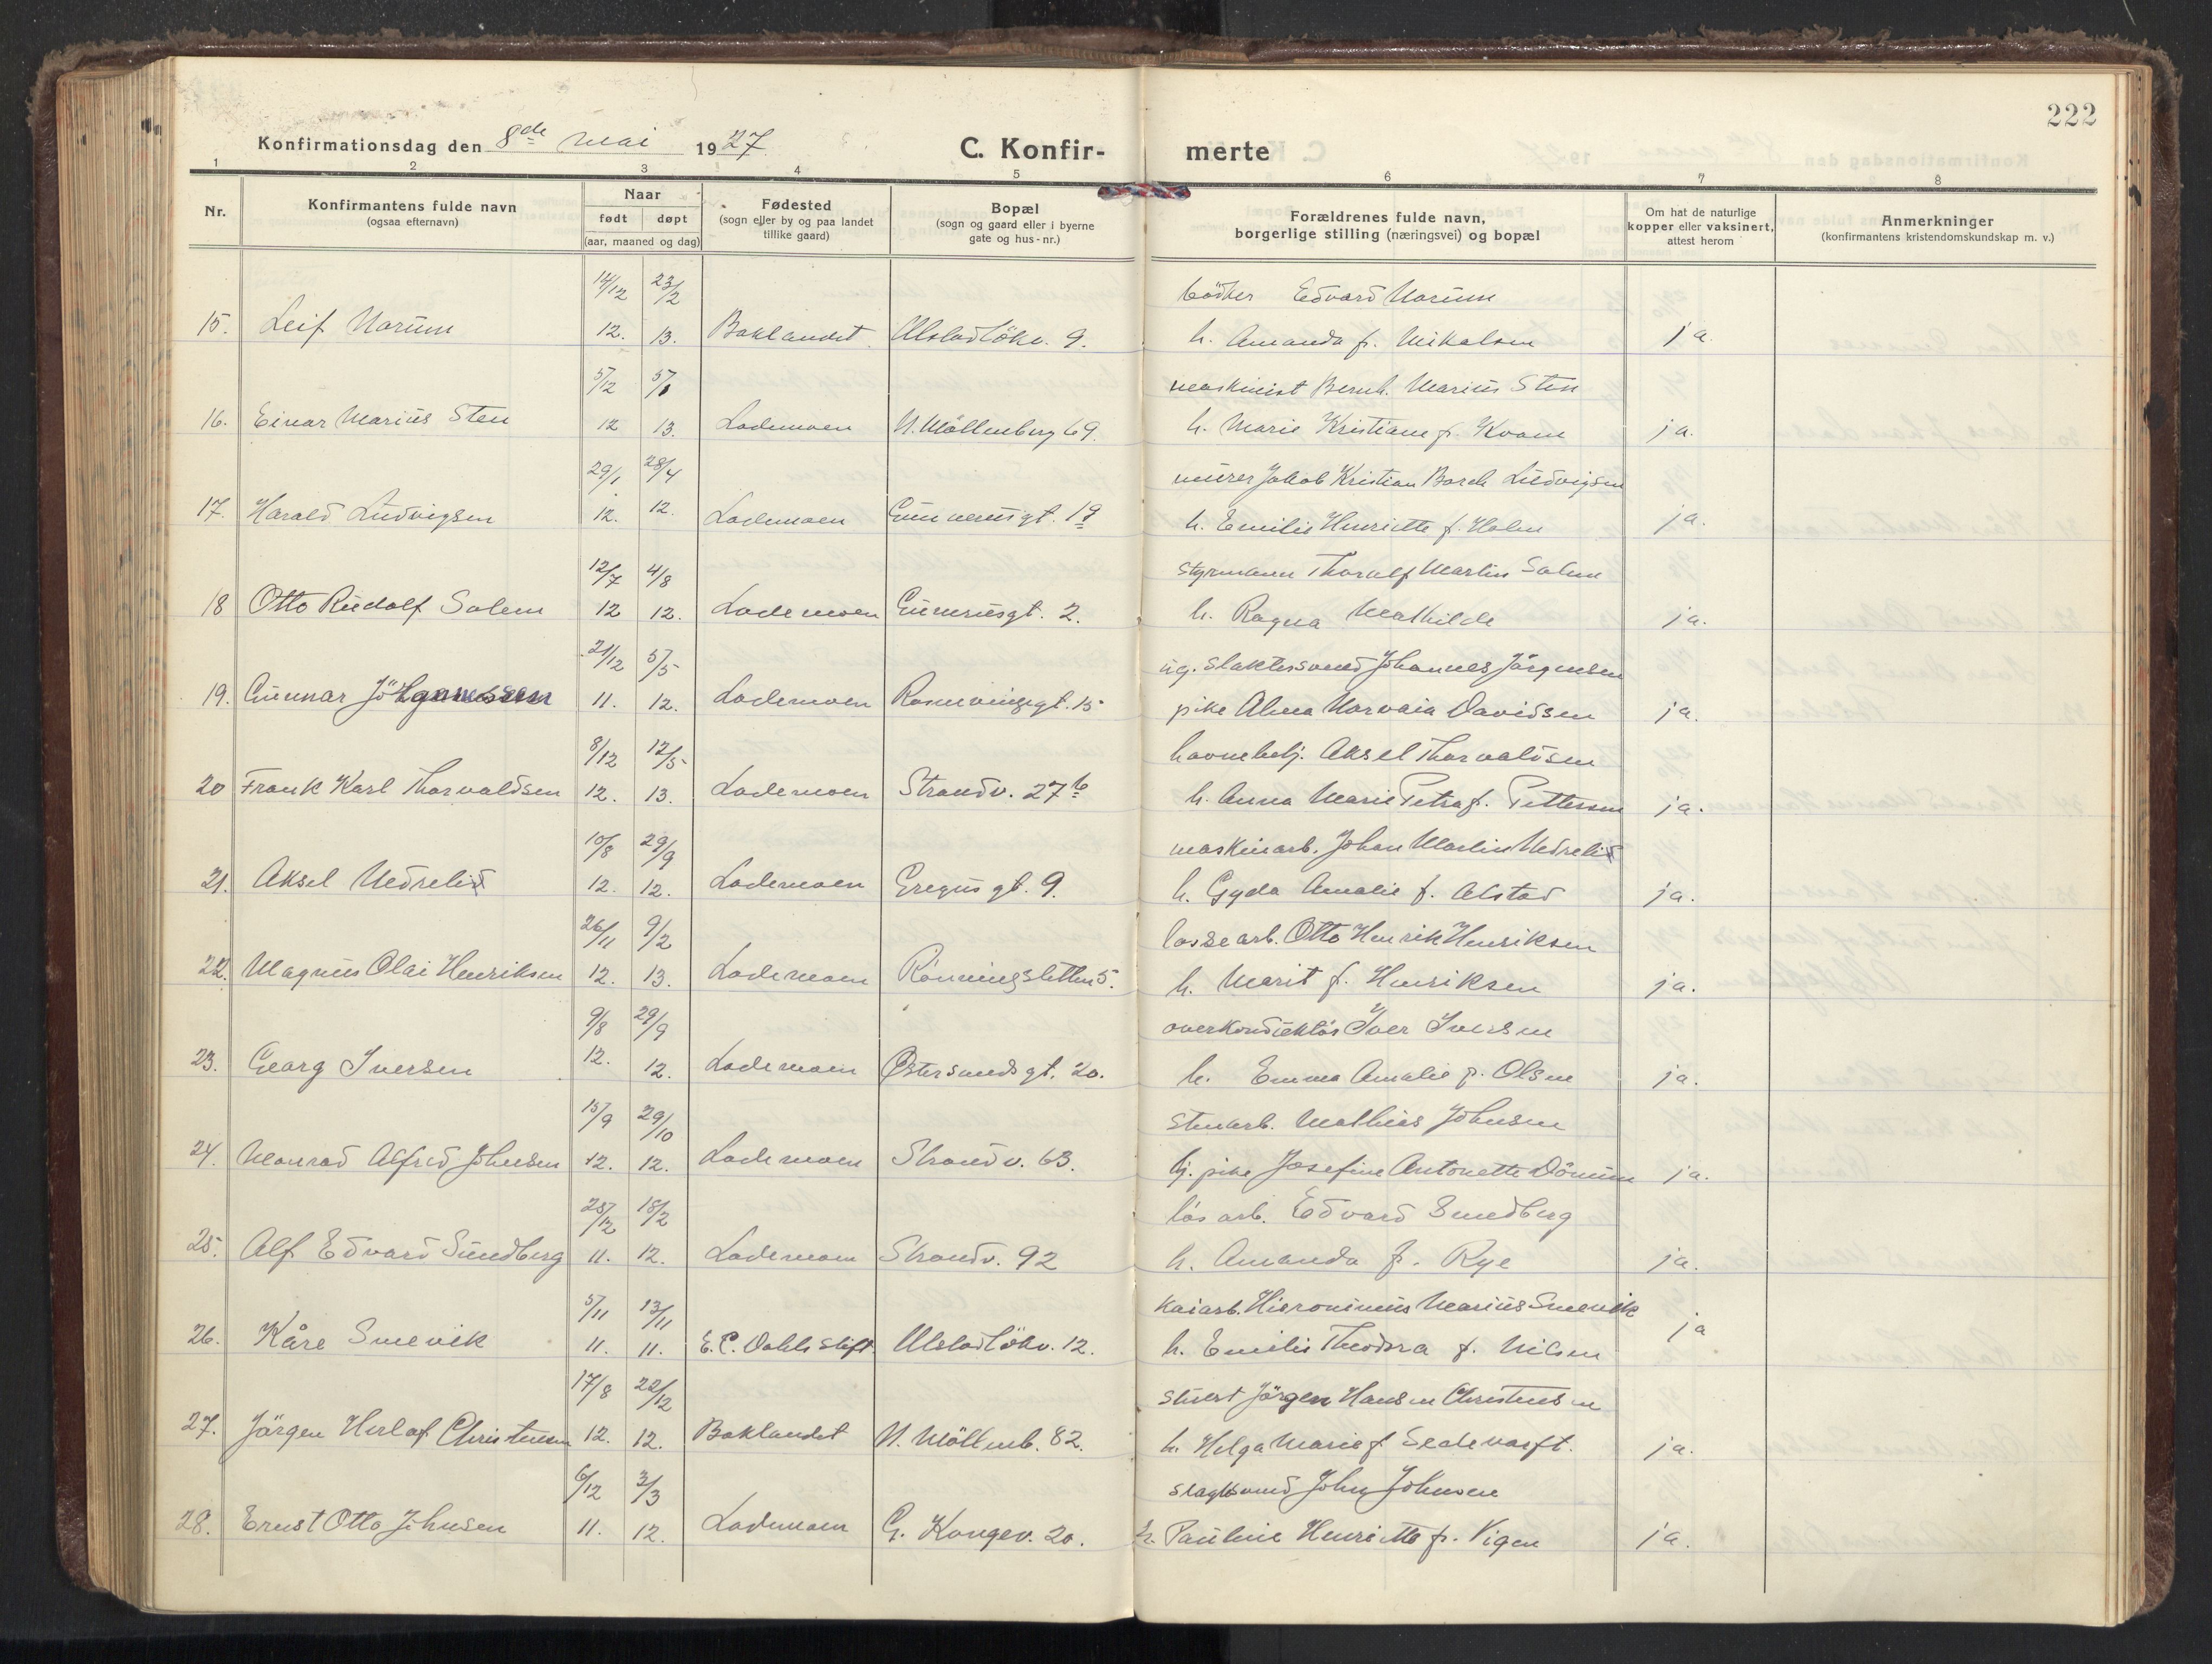 222
Konfirmationsdag den 8de mai 1927. C. Konfir- merte
1 2 3 4 5 6 7 8
Nr. Konfirmantens fulde navn (ogsaa efternavn) Naar født døpt (aar, maaned og dag) Fødested (sogn eller by og paa landet tillike gaard) Bopæl (sogn og gaard eller i byerne gate og hus-nr.) Forældrenes fulde navn, borgerlige stilling (næringsvei) og bopæl Om hat de naturlige kopper eller vaksinert, attest herom Anmerkninger (konfirmantens kristendomskundskap m. v.)
14/12 23/2 bödker Edvard Norum
15. Leif Norum 12. 13. Baklandet Ulstadlökv. 9. h. Amanda f. Mikalsen ja.
5/12 5/1 maskinist Bernh. Marius Sten
16. Einar Marius Sten 12 13. Lademoen N. Möllenberg 69. h. Marie Kristiane f. Kvam ja.
29/1 28/4 murer Jakob Kristian Borch Ludvigsen
17. Harald Ludvigsen 12. 12. Lademoen Gunnerusgt. 19 h. Emilie Henriette f. Holm ja.
12/7 4/8 styrmann Thoralf Martin Solem
18 Otto Rudolf Solem 12 12. Lademoen Gunnerusgt. 2. h. Ragna Mathilde ja.
21/12 5/5 ug. slaktersvend Johannes Jörgensen
19. Gunnar 11. 12. Lademoen Rosenvingegt. 15 pike Alma Norvaia Davidsen ja.
8/12 12/5 havnebetj. Aksel Thorvaldsen
20 Frank Karl Thorvaldsen 12. 13. Lademoen Strandv. 27b h. Anna Marie Petra f. Pettersen ja.
10/8 29/9 maskinarb. Johan Martin Nedrelid
21. Aksel Nedrelid 12. 12. Lademoen Gregusgt. 9. h. Gyda Amalie f. Alstad ja.
26/11 9/2 lossearb. Otto Henrik Henriksen
22. Magnus Olai Henriksen 12. 13. Lademoen Rönningsletten 5. h. Marit f. Henriksen ja.
9/8 29/9 overkonduktör Iver Iversen
23. Georg Iversen 12. 12. Lademoen Østersundsgt. 20. h. Emma Amalie f. Olsen ja.
15/9 29/10 stenarb. Mathias Johnsen
24. Monrad Alfred Johnsen 12. 12. Lademoen Strandv. 63. pike Josefine Antonette Dönum ja.
25/12 18/2 lösarb. Edvard Sundberg
25. Alf Edvard Sundberg 11. 12. Lademoen Strandv. 92 h. Amanda f. Rye ja.
5/11 13/11 kaiarb. Hieronimus Marius Smevik
26. Kåre Smevik 11. 11. E. C. Dahls stift. Ulstadlökv. 12. h. Emilie Theodora f. Nilsen ja
17/8 22/12 stuert Jörgen Hansen Christensen
27. Jörgen Herlof Christensen 12. 12. Baklandet N. Möllenb. 82. h. Helga Marie f. ja.
6/12 3/3 slagtersvend John Johnsen
28. Ernst Otto Johnsen 11. 12. Lademoen G. Kongev. 20. h. Pauline Henriette f. Vigen ja.